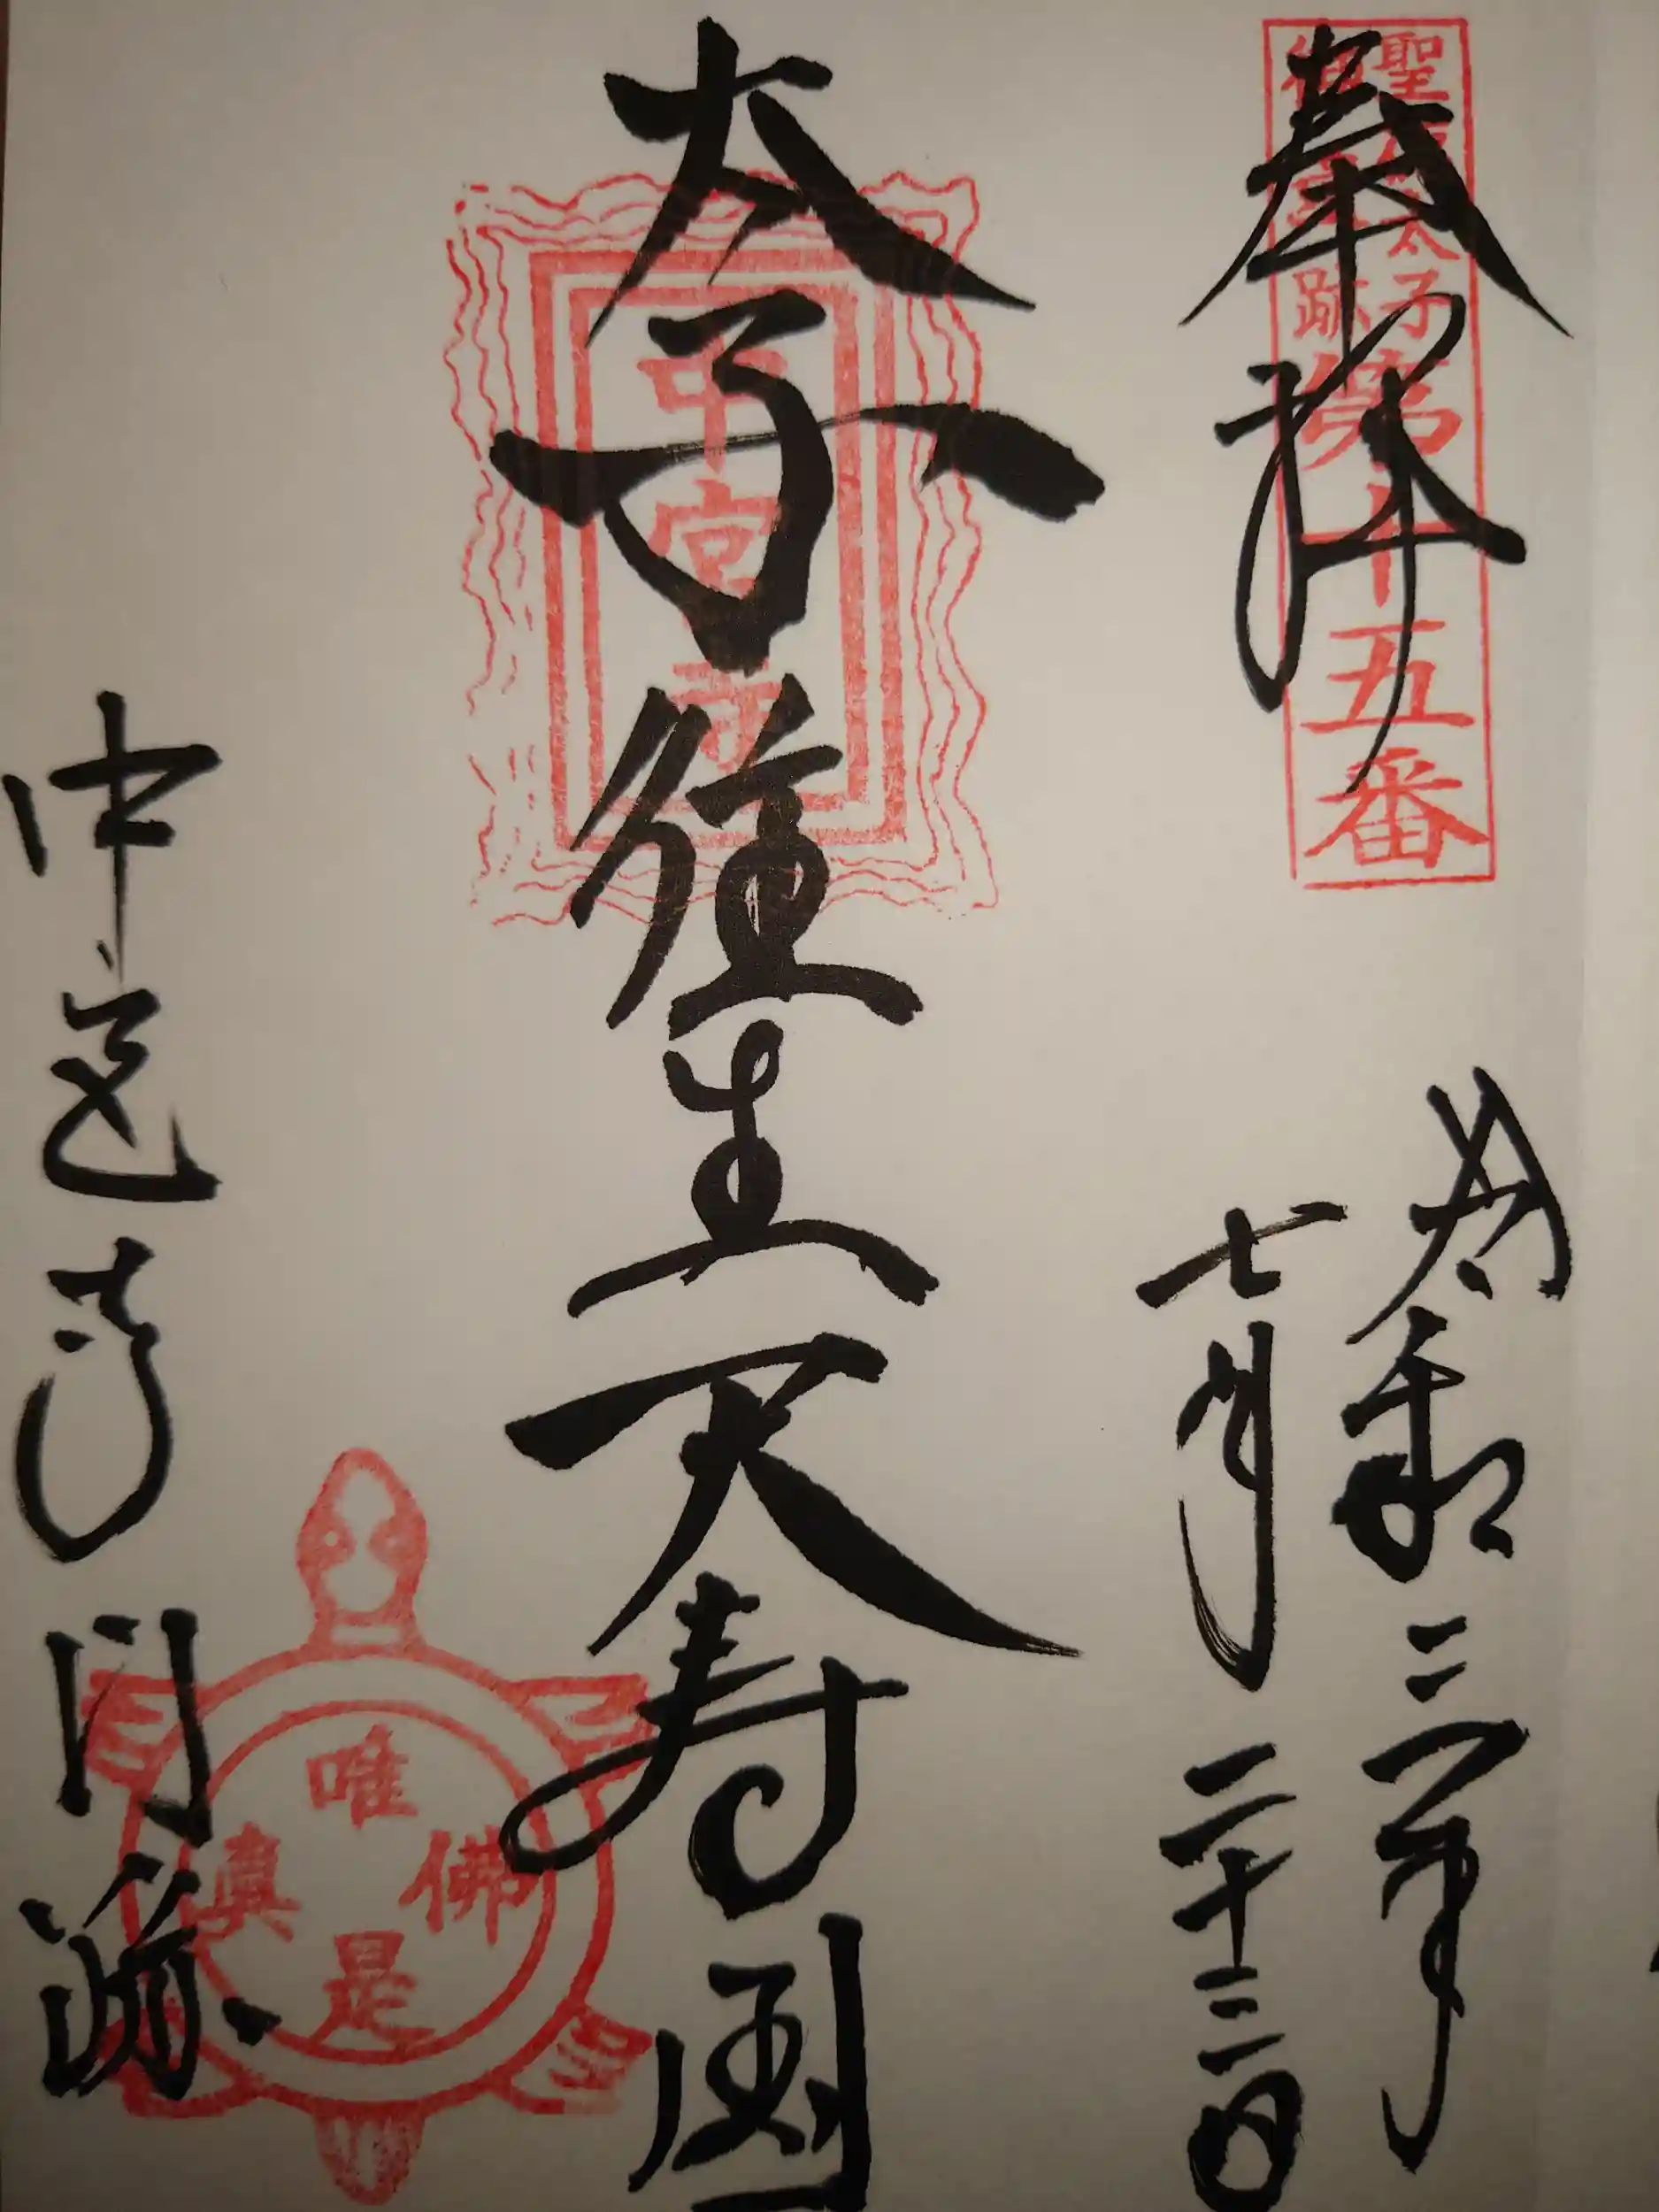 奉拝
聖徳太子
御遺跡
第十五番
令和三年
七月二十三日
太子往生天寿国
中宮寺
中宮寺門跡
唯佛是眞